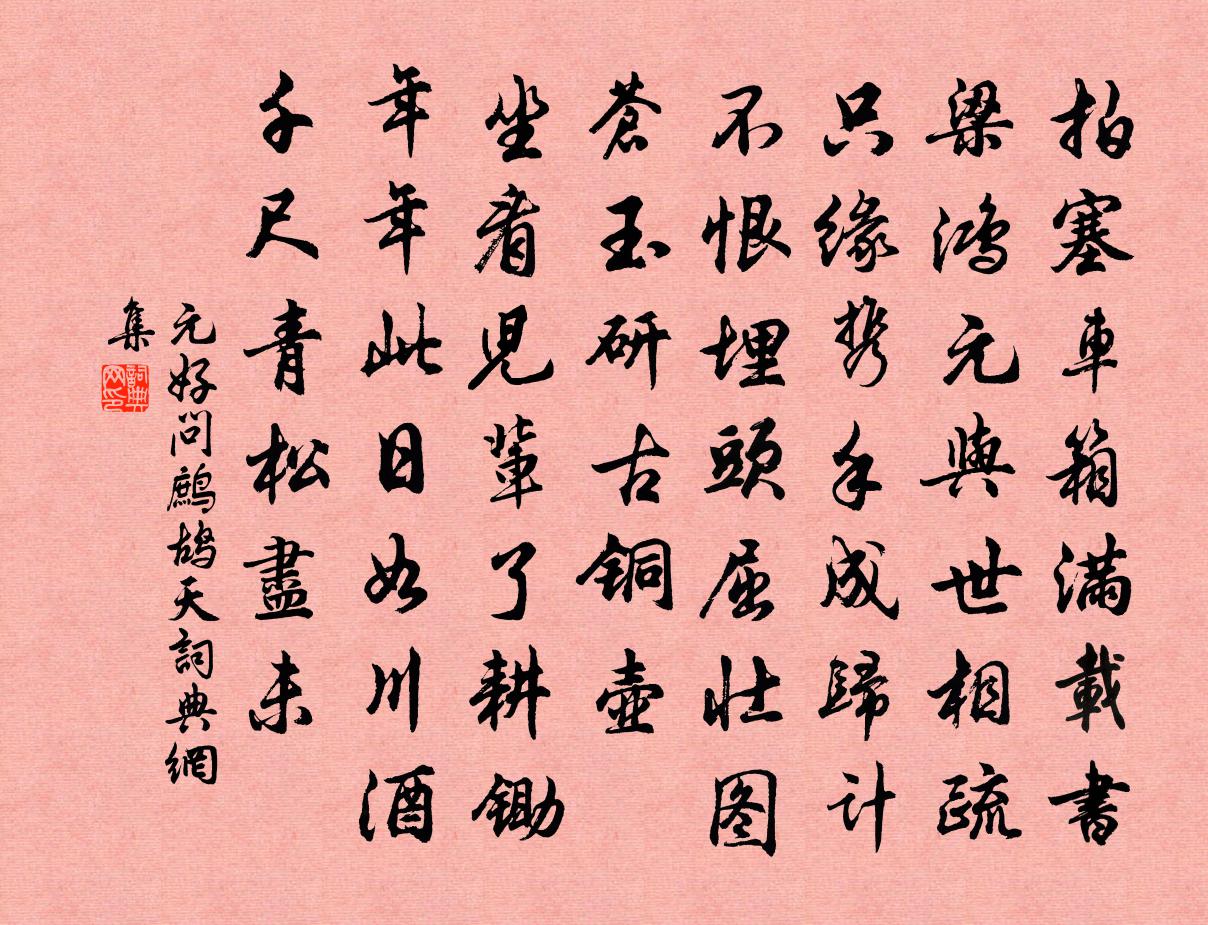 拍塞車箱滿載書
梁鴻元與世相疏
只緣携手成歸計
不恨埋頭屈壯图
蒼玉研古铜壺
坐看児輩了耕鋤
年年此日如川酒
千尺青松盡未
元好問鷓鴣天詞典網
集
詞典
网印